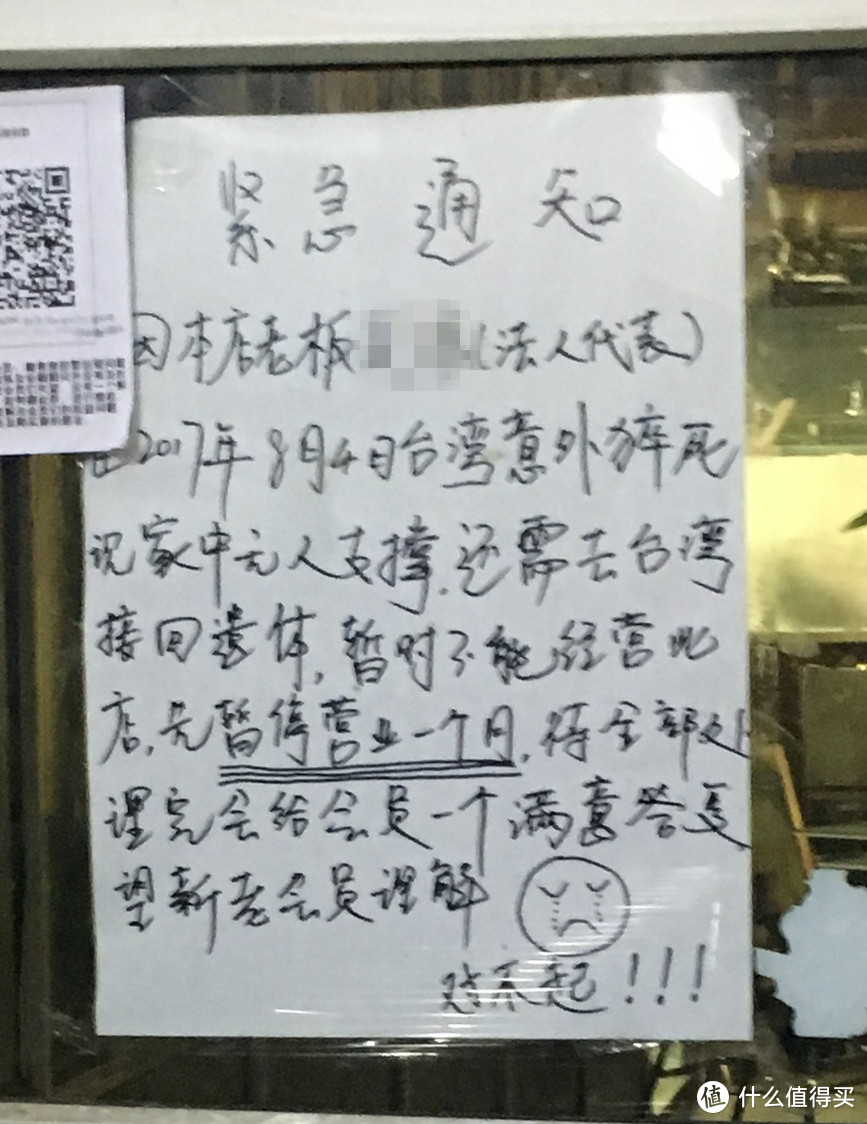 紧急通知
因本店老板 (法人代表)
在2017年8月4日台湾意外猝死
说家中无人支撑,还需去台湾
接回遗体,暂时不能经营此
店,先暂停营业一个月,待全部处
理完会给会员一个满意答复
望新老会员理解
对不起!!!
值 什么值得买